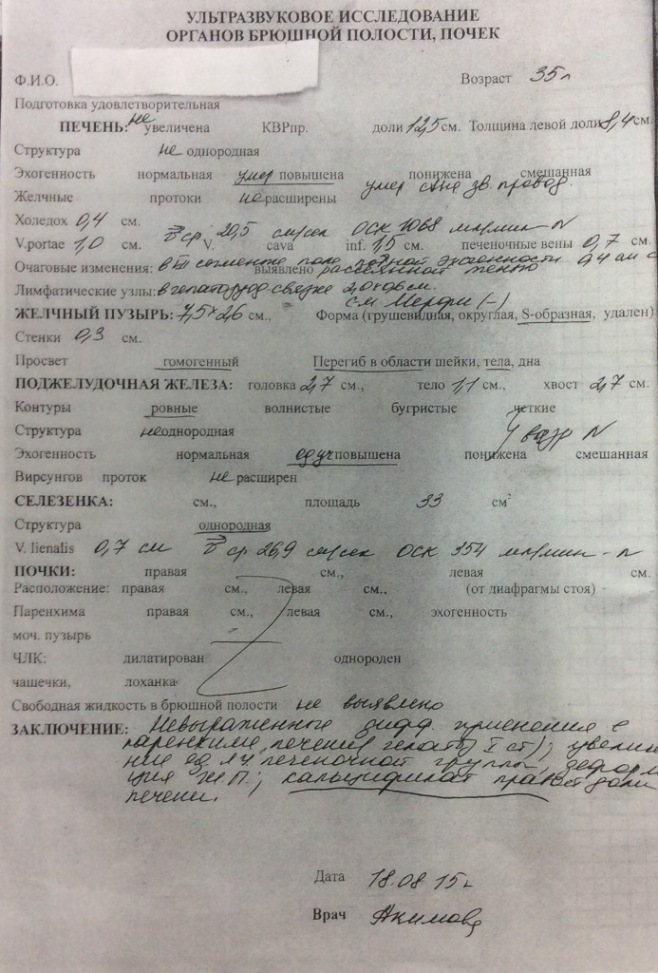 УЛЬТРАЗВУКОВОЕ ИССЛЕДОВАНИЕ
ОРГАНОВ БРЮШНОЙ ПОЛОСТИ, ПОЧЕК
Ф.И.О. Возраст 35 л
Подготовка удовлетворительная
ПЕЧЕНЬ: не увеличена КВРпр. доли 12,5 см. Толщина левой доли 8,4 см.
Структура не однородная
Эхогенность нормальная умер повышена понижена смешанная
Желчные протоки не расширены умер сниж зв. провод.
Холедох 0,4 см.
V ср. 20,5 см/сек ОСК 1068 мл/мин - N
V.portae 1,0 см. V. cava inf. 1,5 см. печеночные вены 0,7 см.
Очаговые изменения: в сегменте выявлено эхогенности 0,4 см с
Лимфатические узлы: в гепатодуод связке 2,0х0,6 см.
см Мерфи (-)
ЖЕЛЧНЫЙ ПУЗЫРЬ: 7,5×2,6 см., Форма (грушевидная, округлая, S-образная, удален)
Стенки 0,3 см.
Просвет гомогенный Перегиб в области шейки, тела, дна
ПОДЖЕЛУДОЧНАЯ ЖЕЛЕЗА: головка 2,7 см., тело 1,1 см., хвост 2,7 см.
Контуры ровные волнистые бугристые четкие
Структура неоднородная возр N
Эхогенность нормальная повышена понижена смешанная
Вирсунгов проток не расширен
СЕЛЕЗЕНКА: см., площадь 33 см²
Структура однородная
V. lienalis 0,7 см V ср 26,9 см/сек ОСК 354 мл/мин - N
ПОЧКИ: правая см., левая см.
Расположение: правая см., левая см., (от диафрагмы стоя) -
Паренхима правая см., левая см., эхогенность
моч. пузырь
ЧЛК: дилатирован однороден
чашечки, лоханка
Свободная жидкость в брюшной полости не выявлено
ЗАКЛЮЧЕНИЕ: Невыраженные дифф. изменения в
паренхиме печени (гепатоз I ст); увеличе
ние ед. л.у. печеночной группы, деформа
ция ж.п.; кальцификат правой доли
печени.
Дата 18.08 15 г
Врач Акимова